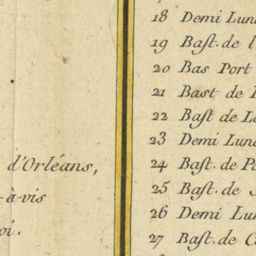 d'Orléans,
-à-vis
oi.
18 Demi Lun
19 Baſt. de l
20 Bas Port
21 Bast de
22 Baſt de L
23 Demi Lun
24 Baſt. de P
25 Baſt. de
26 Demi Lu
27 Baſt. de C